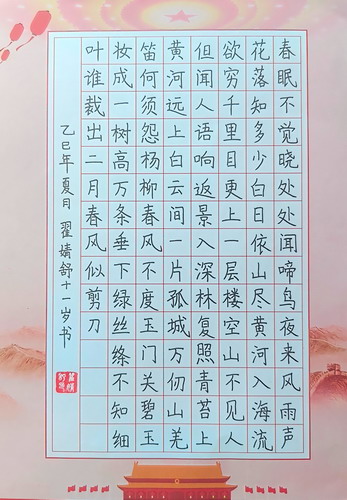 春眠不觉晓处处闻啼鸟夜来风雨声
花落知多少白日依山尽黄河入海流
欲穷千里目更上一层楼空山不见人
但闻人语响返景入深林复照青苔上
黄河远上白云间一片孤城万仞山羌
笛何须怨杨柳春风不度玉门关碧玉
妆成一树高万条垂下绿丝绦不知细
叶谁裁出二月春风似剪刀
乙巳年夏月 翟婧舒十一岁书